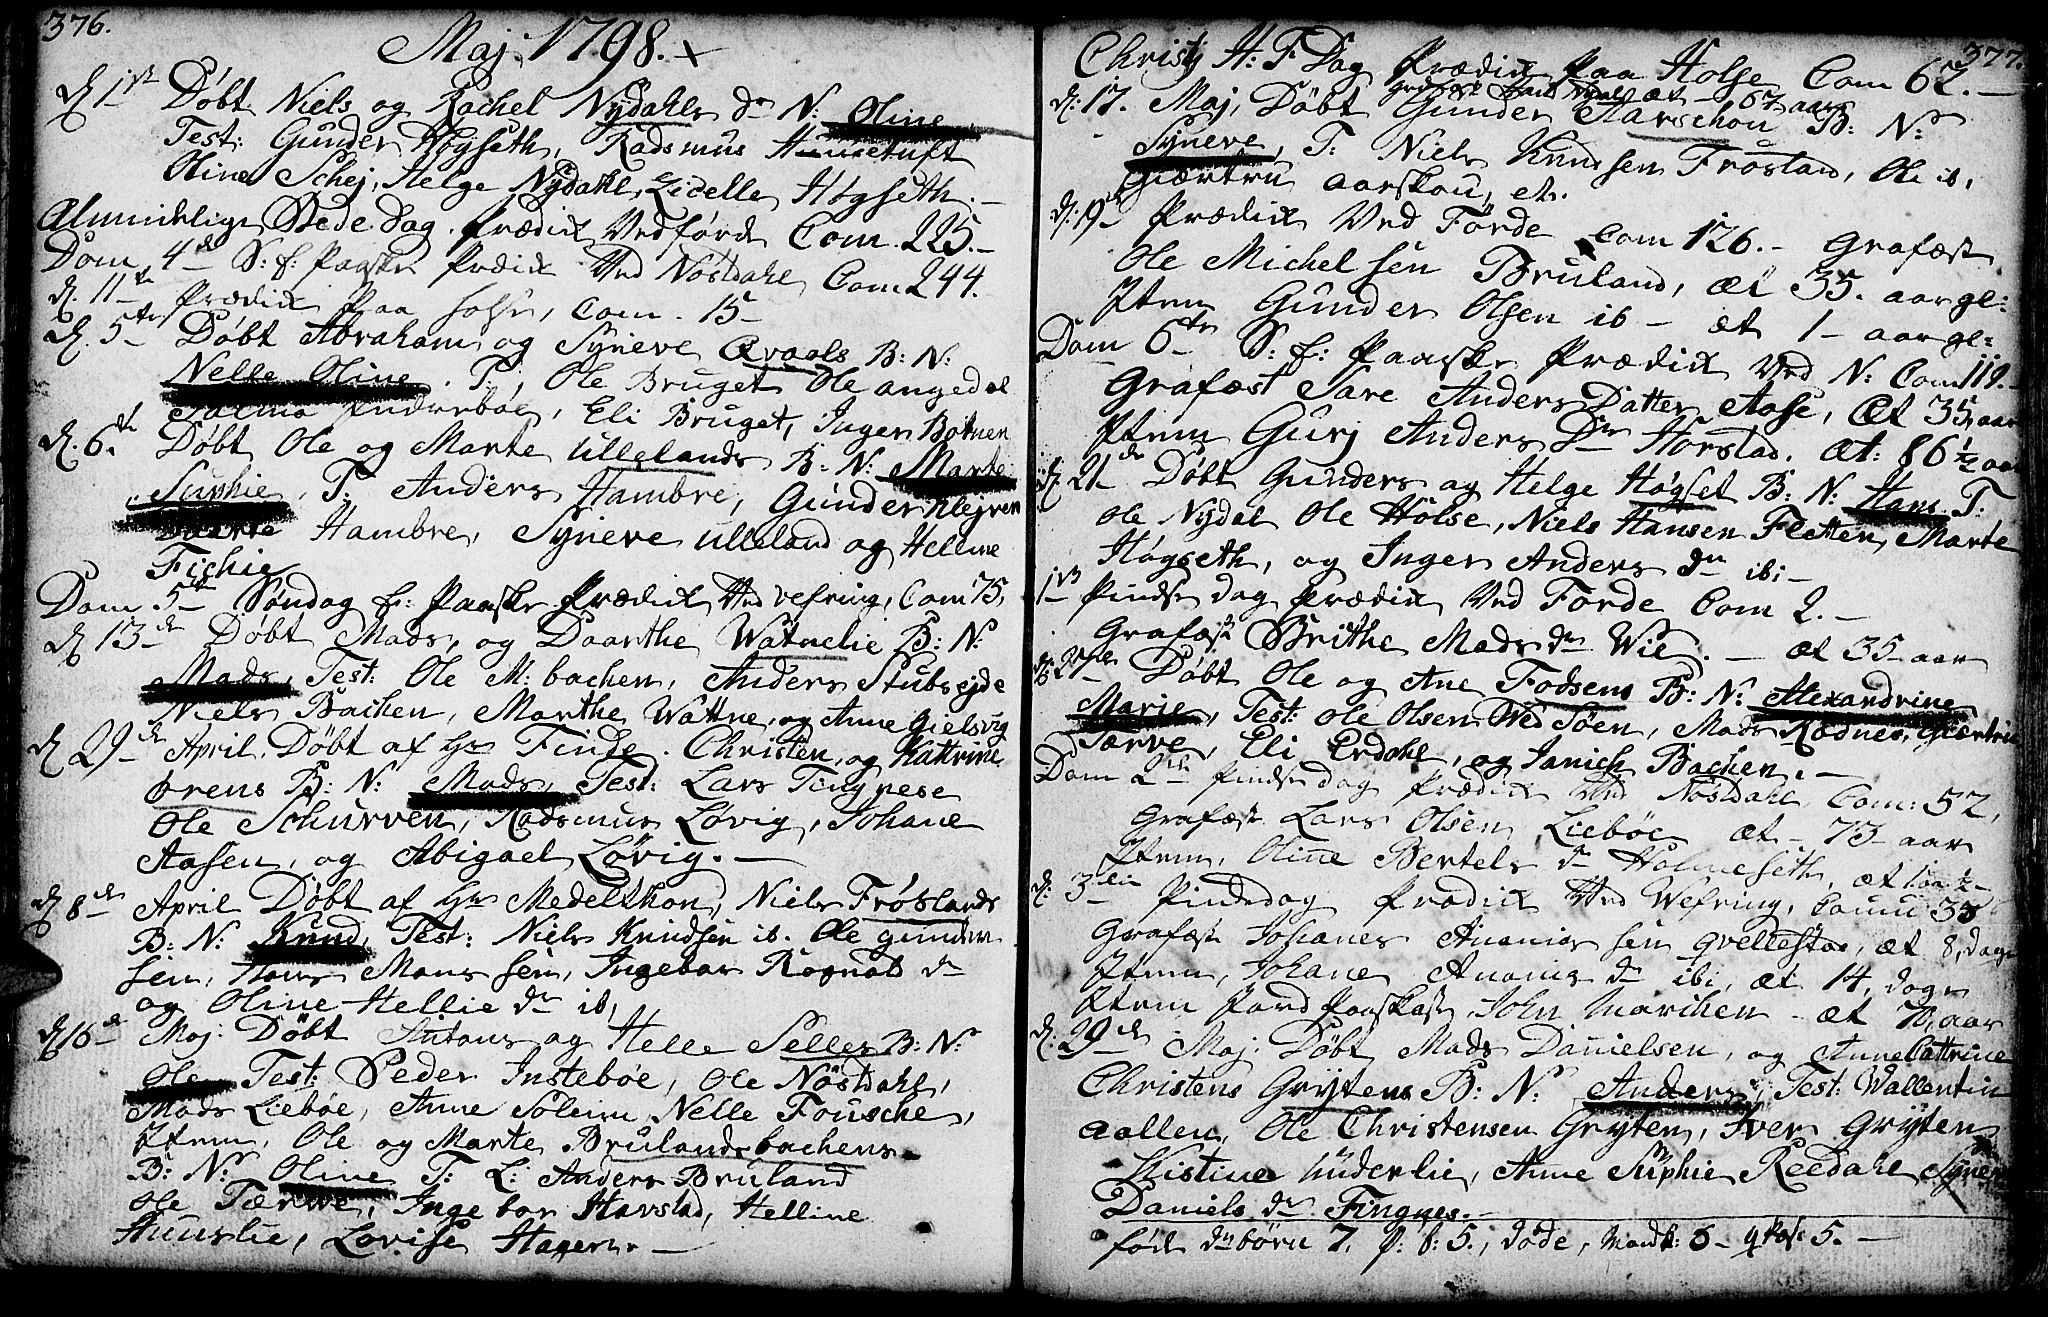 376.
Maj. 1798. +
d. 1ste Døbt Niels og Rachel Nydahls dr N: Oline
Test: Gunder Høgseth, Radsmus Hunetuft
Oline Schej, Helge Nydahl, Zidelle Høgseth. –
Almindelige Bede dag. Prædik Ved førde Com. 225. –
Dom 4de S: f: Paaske Prædik Ved Nøstdahl Com 244.
d. 11te Prædik Paa Holse, Com. 15 –
d. 5te Døbt Abraham og Syneve Qvaals B: N:
Nelle Oline. T:, Ole Bruget Ole angedal
Inderbøe, Eli Bruget, Inger Botnen
d. 6te Døbt Ole og Marte Ullelands B: N: Marte
Suphie. T: Anders Hambre, Gunder Klejven
Hambre, Syneve Ulleland og Helline
Fichie
Dom 5te Søndag f: Paaske Prædik Ved vefring, Com 75,
d. 13de Døbt Mads, og Daarthe Watnelie B: N:
Mads, Test: Ole M: bachen, Anders Stubseide
Niels Bachen, Marthe Wattne, og Anne Gielsvig
d. 29de April. Døbt af Hr Finde. Christen, og Kattrine
ørens B: N: Mads, Test: Lars Tingnese
Ole Schurven, Radsmus Løvig, Johane
Aasen, og Abigael Løvig. –
d. 8de April Døbt af Hr Medelthon, Niels Frøslands
B: N: Knud, Test: Niels Knudsen ib. Ole gunder
sen, Hans Mons sen, Ingebor Rognals dr
og Oline Hellie dr ib,
d. 16de Maj: Døbt Antons og Helle Selles B: N:
Ole Test: Peder Instebøe, Ole Nøstdahl,
Mads Liebøe, Anne Soleim Nelle Fousche,
Item, Ole og Marte Brulandsbachens
B: N: Oline T: L: Anders Bruland
Ole Tærve, Ingebor Harstad, Helline
Huuslie, Lovise Hagen. –
377.
Christj H: F Dag Prædik Paa Holse Com 62. –
æt – 67 aar
d. 17. Maj, Døbt Gunder Aarschou B: N:
Syneve, T: Niels Knudsen Frøstad, Ole ib,
Giærtru aarskou, etc.
d. 19de Prædik Ved Førde Com 126. – Grafæst
Ole Michelsen Bruland, æt 35. aar gl:
Item Gunder Olsen ib – æt 1 – aar gl:
Dom 6te S: f: Paaske Prædik Ved N: Com 119. –
Grafæst Sare Anders Datter Aase, Æt 35, aar
Item Gurj Anders Dr Horstad. æt: 86 ½ aar
d. 21de Døbt Gunders og Helge Høgset B: N: Hans T:
Ole Nydal Ole Holse, Niels Hansen Fletten, Marte
Høgseth, og Inger Anders dr ibi –
1ste Pindse dag Prædik Ved Førde Com 2. –
Grafæst Brithe Mads dr Wie. – æt 35 aar
d. 27de Døbt Ole og Ane Fodsens B: N: Alexandrine
Marie, Test: Ole Olsen Wed Søen, Mads Rødnes, Giærtru
Tærve, Eli Erdahl, og Janich Bachen. –
Dom 2de Pindse dag Prædik Ved Nøstdahl, Com: 52,
Grafæst Lars Olsen Liebøe æt 73 – aar
Item, Oline Bertels dr Holmeseth, æt 1 aa ½ –
d. 3die Pindsdag Prædik Ved Wefring, Comu 33
Grafæst Johanes Ananias sen qvellestad, æt 8, dage
Item, Johane Ananias dr ibi, æt 14, dage
Item Jord Paaskast, John Marchen – æt 70, aar
d. 29de Maj. Døbt Mads Danielsen, og Anne Cattrine
Christens Grytens B: N: Anders, Test: Wallentin
aallen, Ole Christensen Gryten, Iver Gryten
Kistine Underlie, Anne Suphie Reedahl Syneve
Daniels dr Fingnes. –
føde dr børn 7. p: b: 5., døde, Mandk: 6 – qkøf: 5. –